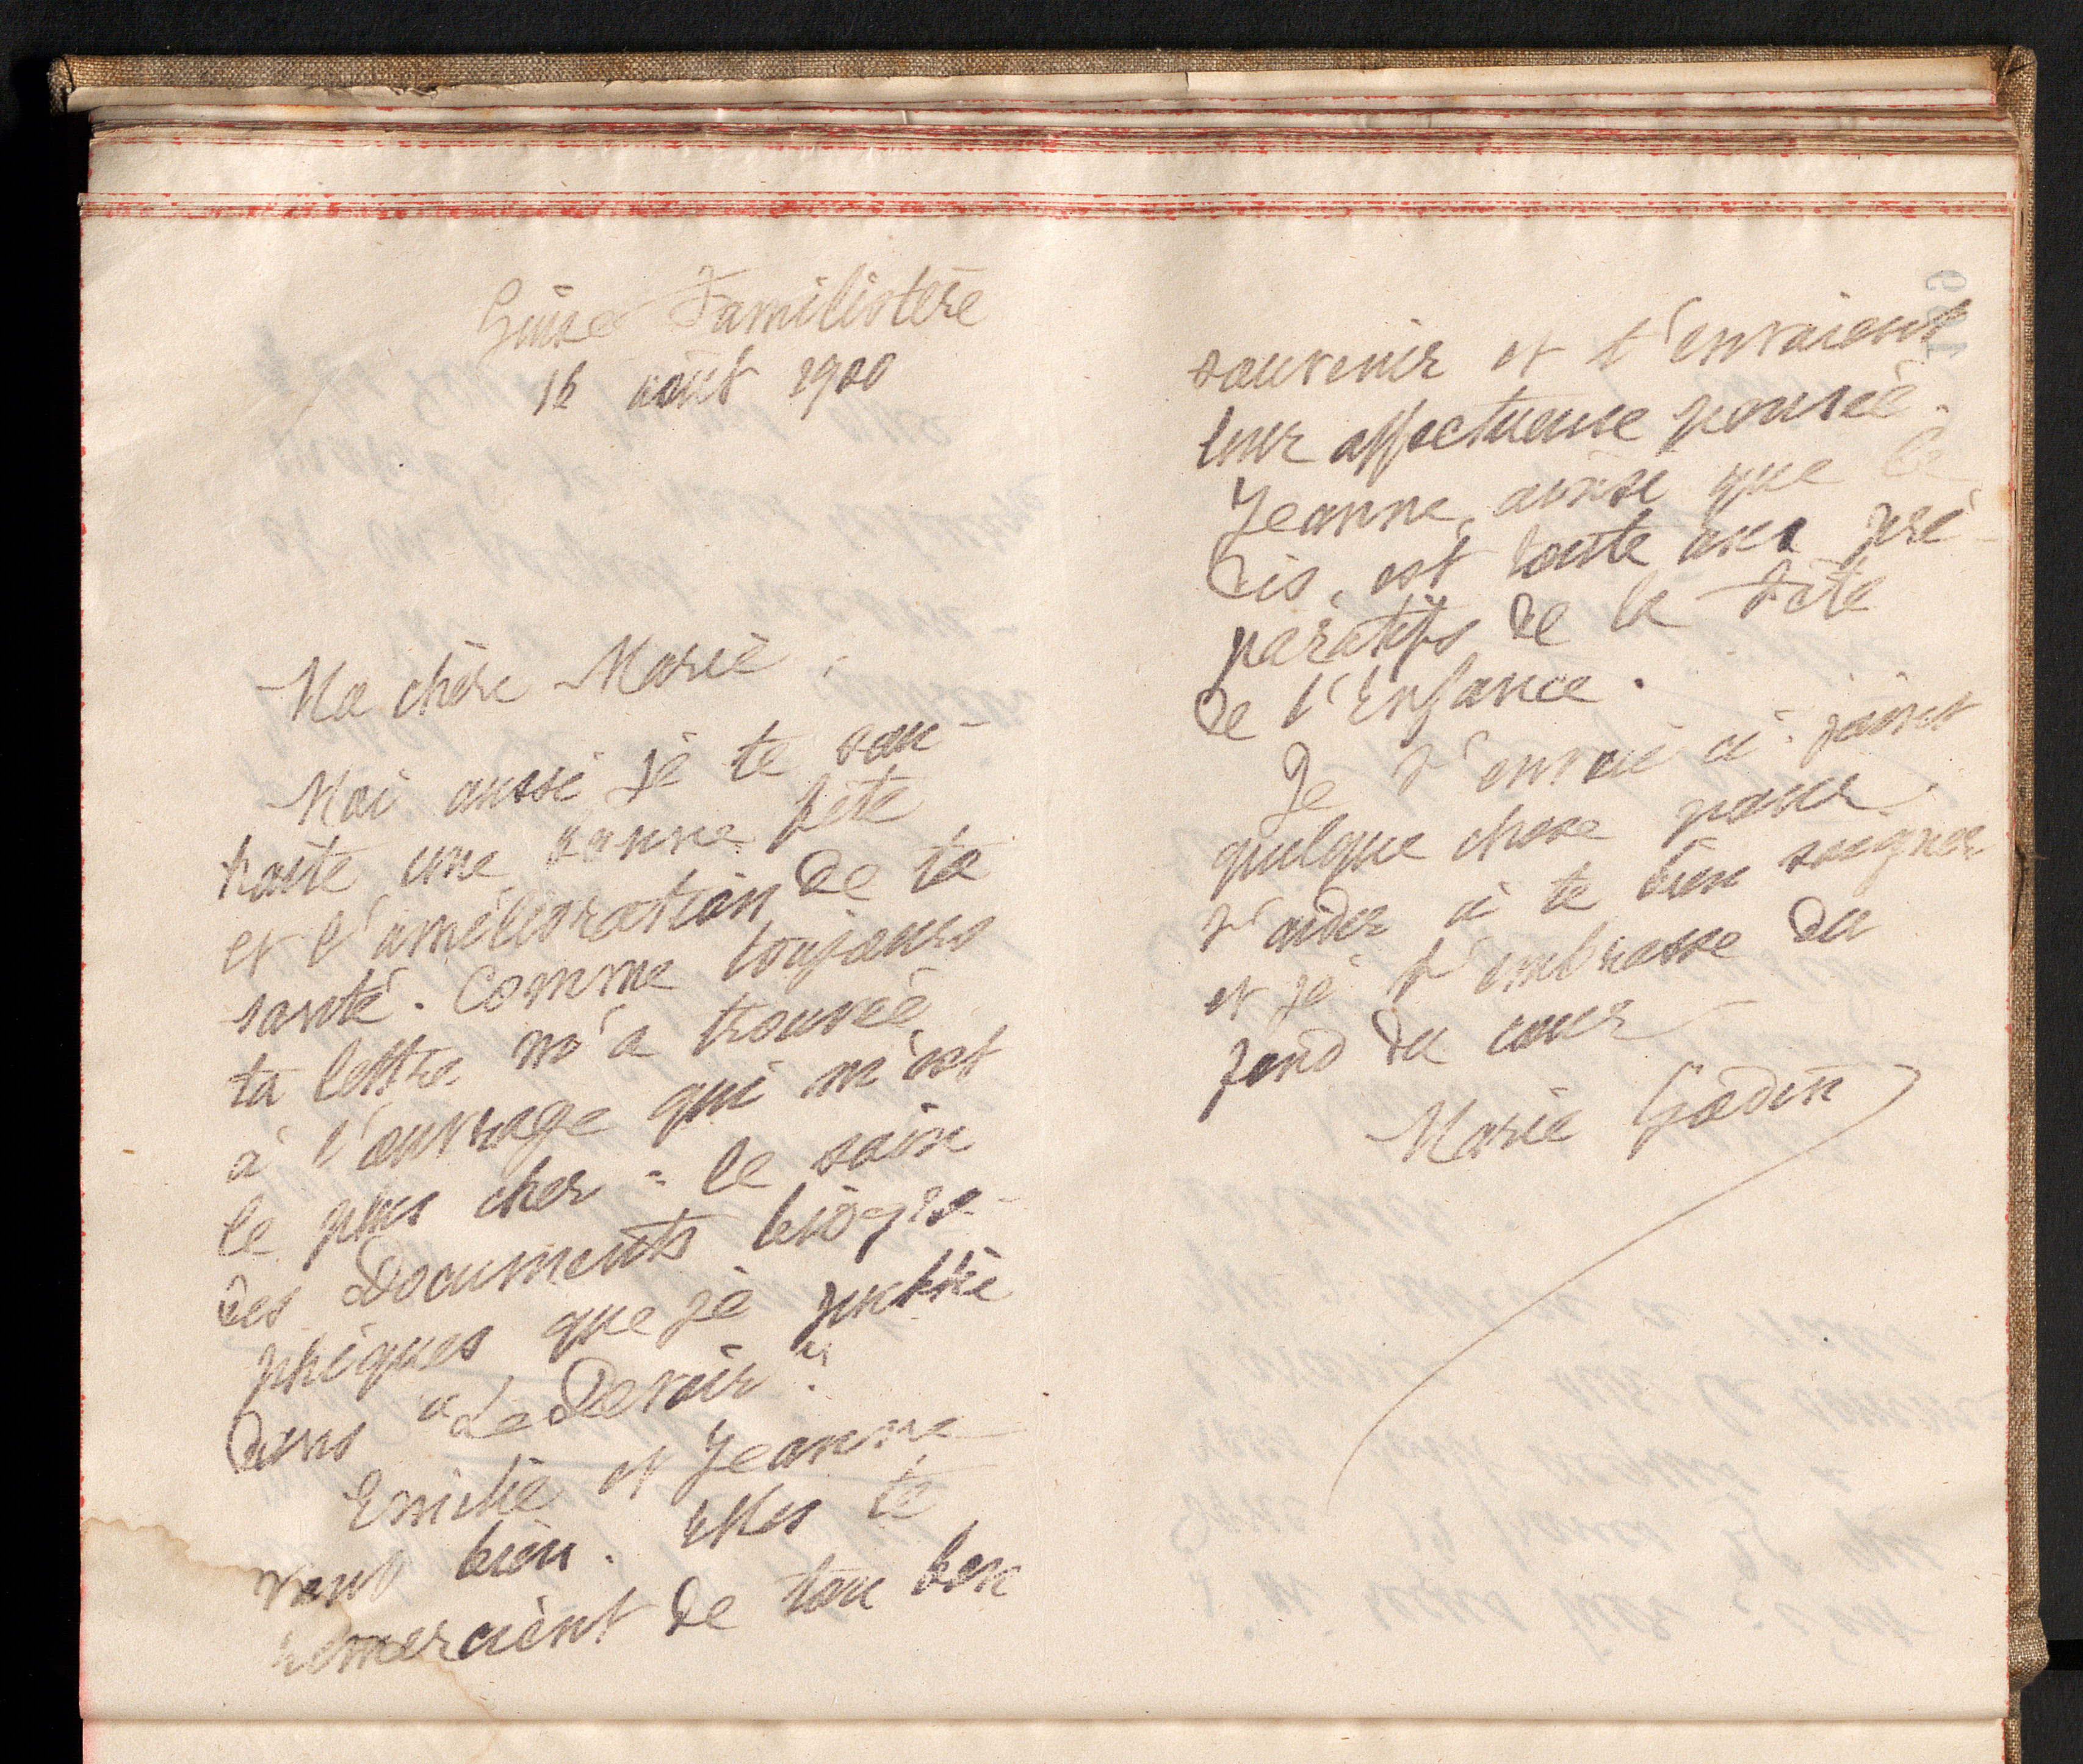 Guise Familistère
16 août 1900
Ma chère Marie,
Moi aussi je te sou-
haite une bonne fête
et l'amélioration de ta
santé. Comme toujours
ta lettre m'a trouvée
à l'ouvrage qui m'est
le plus cher : le soin
des Documents biogra-
phiques que je publie
dans "Le Devoir".
Emilie et Jeanne
vont bien. Elles te
remercient de ton bon
souvenir et t'envoient
leur affectueuse pensée.
Jeanne, ainsi que le
dis, est toute aux pré-
paratifs de la Fête
de l'Enfance.
Je t'envoie ci-joint
quelque chose pour
t'aider à te bien soigner
et je t'embrasse du
fond du cœur
Marie Godin